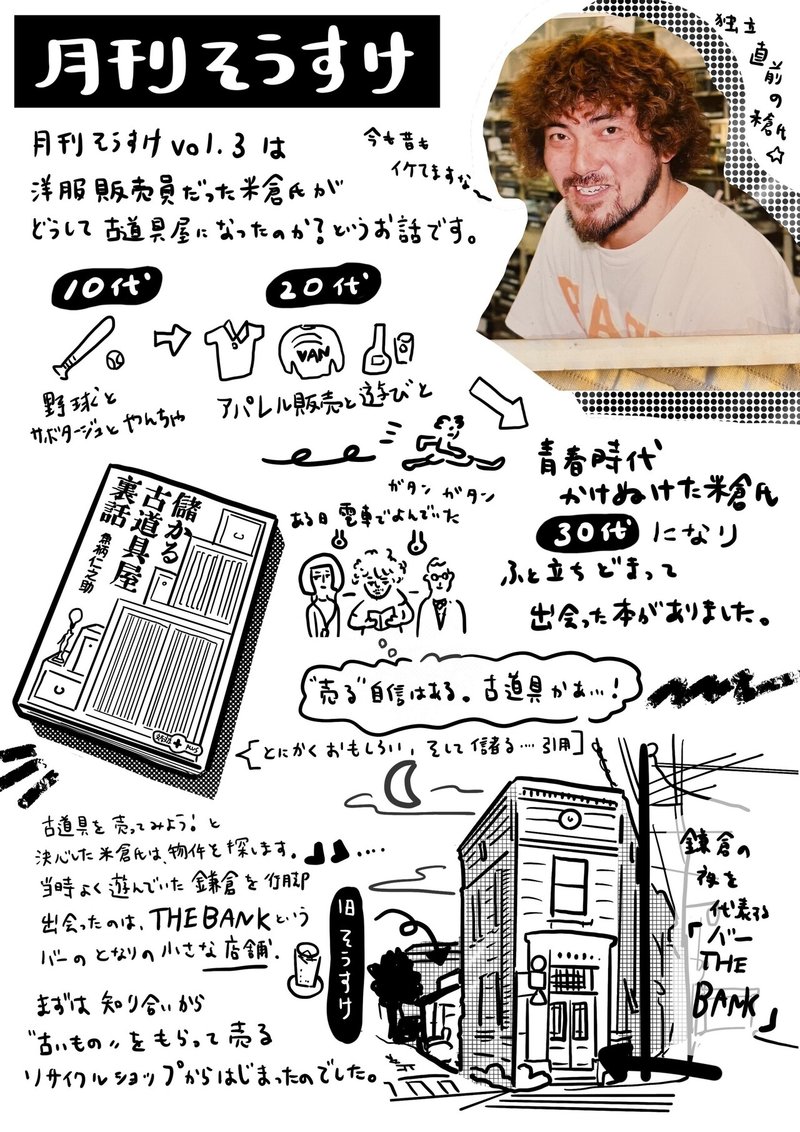 月刊そうすけ
独立
直前の
米倉氏☆
今も昔も
イケてますな〜
月刊そうすけ vol.3 は
洋服販売員だった米倉氏が
どうして古道具屋になったのか?というお話です。
10代
20代
VAN
野球と
サボタージュとやんちゃ
アパレル販売と遊びと
青春時代
かけぬけた米倉氏
30代になり
ふと立ちどまって
出会った本がありました。
ガタン ガタン
ある日電車でよんでいた
儲かる
古道具屋
裏話
魚柄仁之助
"売る"自信はある。古道具かぁ…!
[とにかくおもしろい、そして儲る…引用]
古道具を売ってみよう!と
決心した米倉氏は、物件を探します。
当時よく遊んでいた鎌倉を行脚
出会ったのは、THE BANKという
バーのとなりの小さな店舗。
まずは知り合いから
"古いもの"をもらって売る
リサイクルショップからはじまったのでした。
旧そうすけ
鎌倉の
夜を
代表る
「バー
THE
BANK」